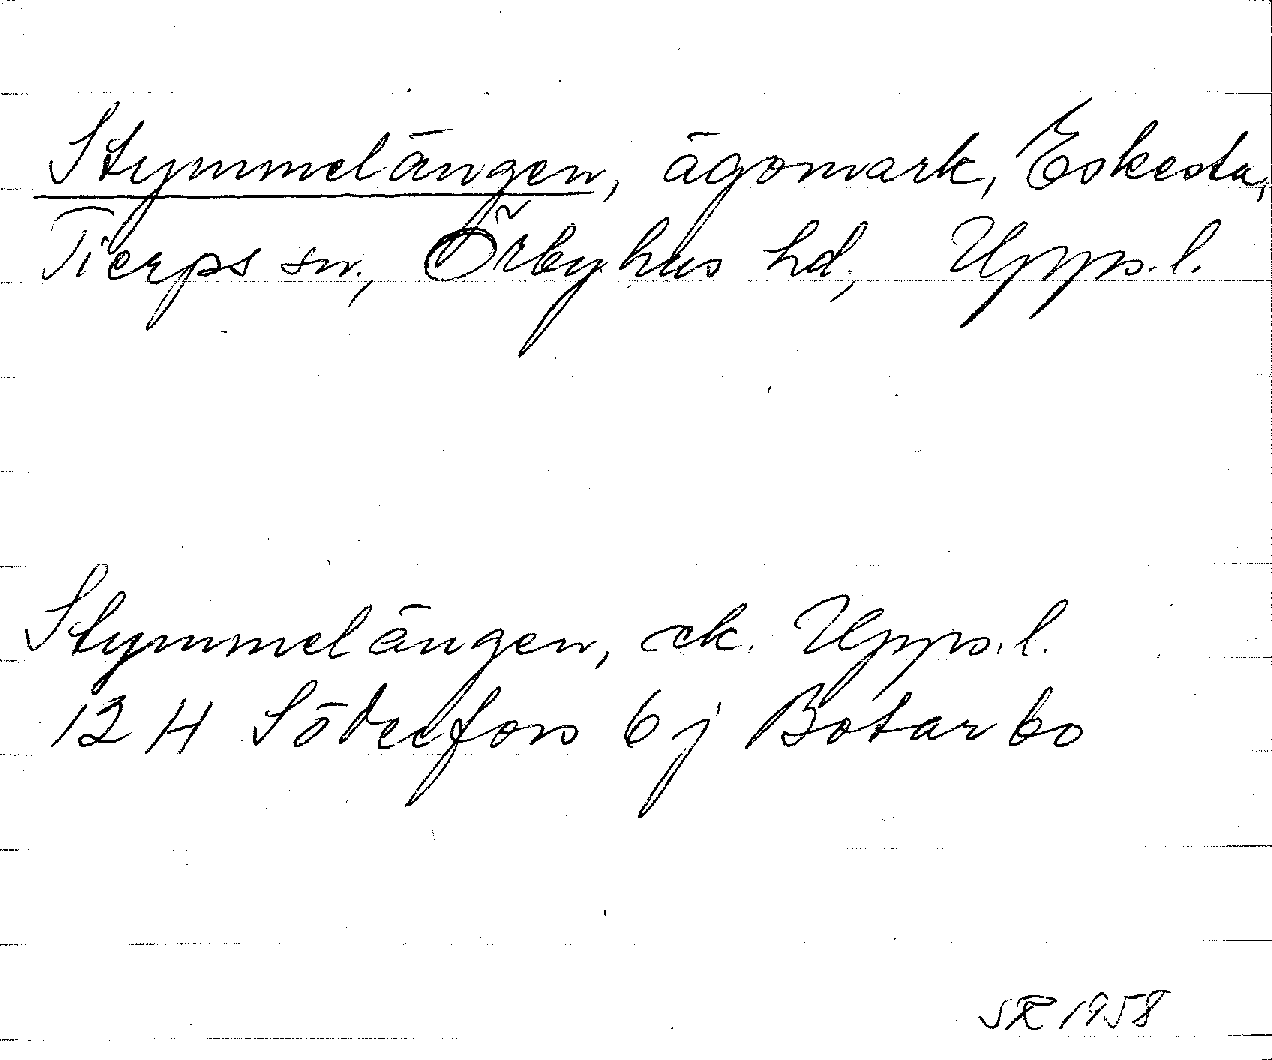 Stymmelängen, ägomark, Eskesta,
Tierps sn, Örbyhus hd, Upps.l.
Stymmelängen, ek. Upps.l.
12 H Söderfors 6j Botarbo
1958